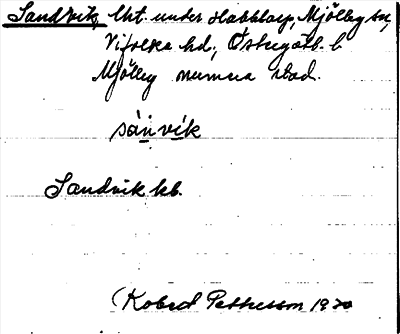 Sandvik, lht. under Habblarp, Mjölby sn,
Vifolka hd, Östergötl. l.
Mjölby numera stad.
sánvík
Sandvik kb.
Robert Pettersson 1930